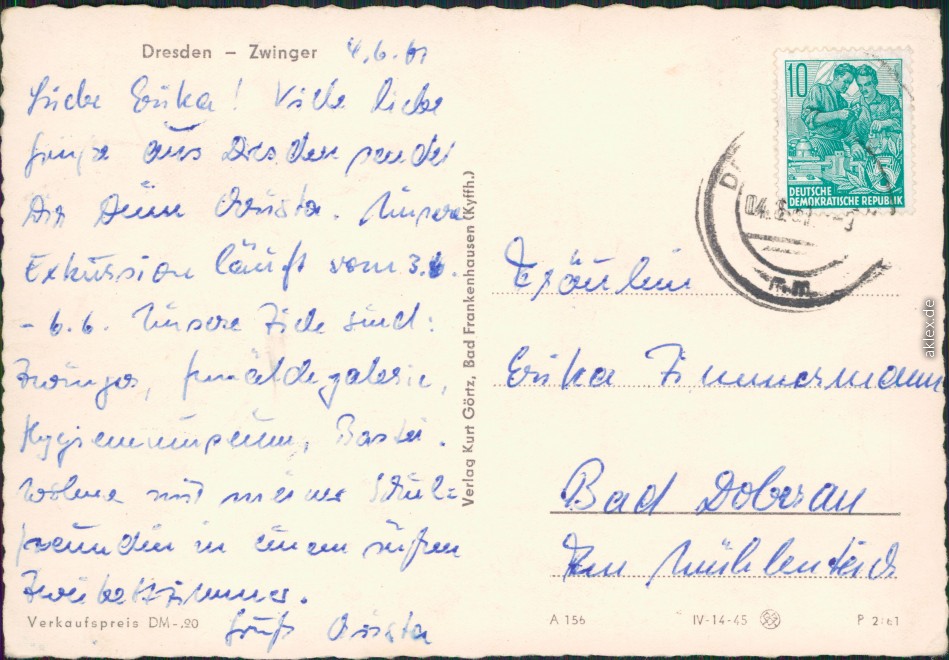 Dresden – Zwinger 4.6.61
Liebe Erika! Viele liebe
Grüße aus Dresden sendet
Dir Deine Christa. Unsere
Exkursion läuft vom 3.6.
- 6.6. Unsere Ziele sind:
Zwinger, Gemäldegalerie,
Hygienemuseum, Bastei.
Wohne mit meiner Schul=
freundin in einem süßen
Zweibettzimmer.
Gruß Christa
Verkaufspreis DM -.20
Verlag Kurt Görtz, Bad Frankenhausen (Kyffh.)
10
5
DEUTSCHE
DEMOKRATISCHE REPUBLIK
Fräulein
Erika Zimmermann
Bad Doberan
Am Mühlenteich
A 156 IV-14-45 P 2/61
aklex.de